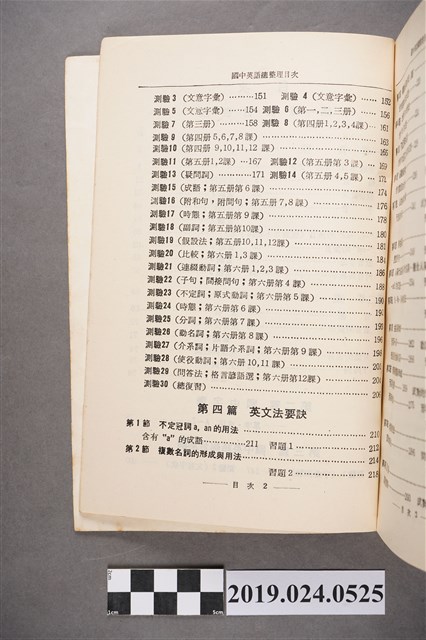 國中英語總整理目次
測驗3 (文意字彙) ………151 測驗 4 (文意字彙) ……152
測驗5 (文意字彙) ………154 測驗 6 (第一,二,三册) 156
測驗7 (第三册) …………158 測驗 8 (第四册1,2,3,4課) 161
測驗9 (第四册5,6,7,8課) 163
測驗10 (第四册 9,10,11,12 課) 165
測驗11 (第五册1,2課) …167 測驗12 (第五册第3課) 169
測驗13 (疑問詞) ………171 測驗14 (第五册 4,5課) 171
測驗15 (成語;第五册第6課) 174
測驗16 (附和句,附問句;第五册 7,8課) 176
測驗17 (時態;第五册第9課) 178
測驗18 (副詞;第五册第10課) 180
測驗19 (假設法;第五册10,11,12課) 181
測驗20 (比較;第六册 1,3課) 184
測驗21 (連綴動詞;第六册 1,2,3課) 186
測驗22 (子句;間接問句;第六册第4課) 188
測驗23 (不定詞;原式動詞;第六册第5課)
測驗24 (時態;第六册第6課)
測驗25 (分詞;第六册第7課) 195
測驗26 (動名詞;第六册第8課) 196
測驗27 (介系詞;片語介系詞;第六册第9課) 198
測驗28 (使役動詞;第六册 10,11課) 201
測驗29 (問答法;格言諺語選;第六册第12課)
測驗30 (總復習)
第四篇 英文法要訣
第1節 不定冠詞a, an的用法 210
含有 "a" 的成語 ………211 習題1 212
第2節 複數名詞的形成與用法 214
習題2 218
—— 目次 2 ——
2019.024.0525
1cm
5cm